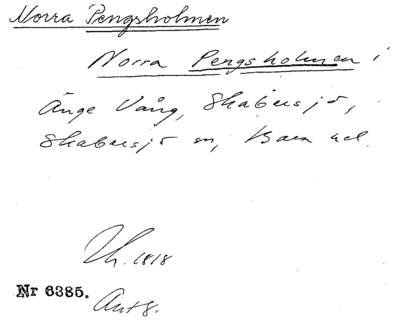 Norra Pengsholmen
Norra Pengsholmen i
Änge Vång, Skabersjö,
Skabersjö sn, Bara hd.
Lh. 1818
Nr 6385.
Ant 8.